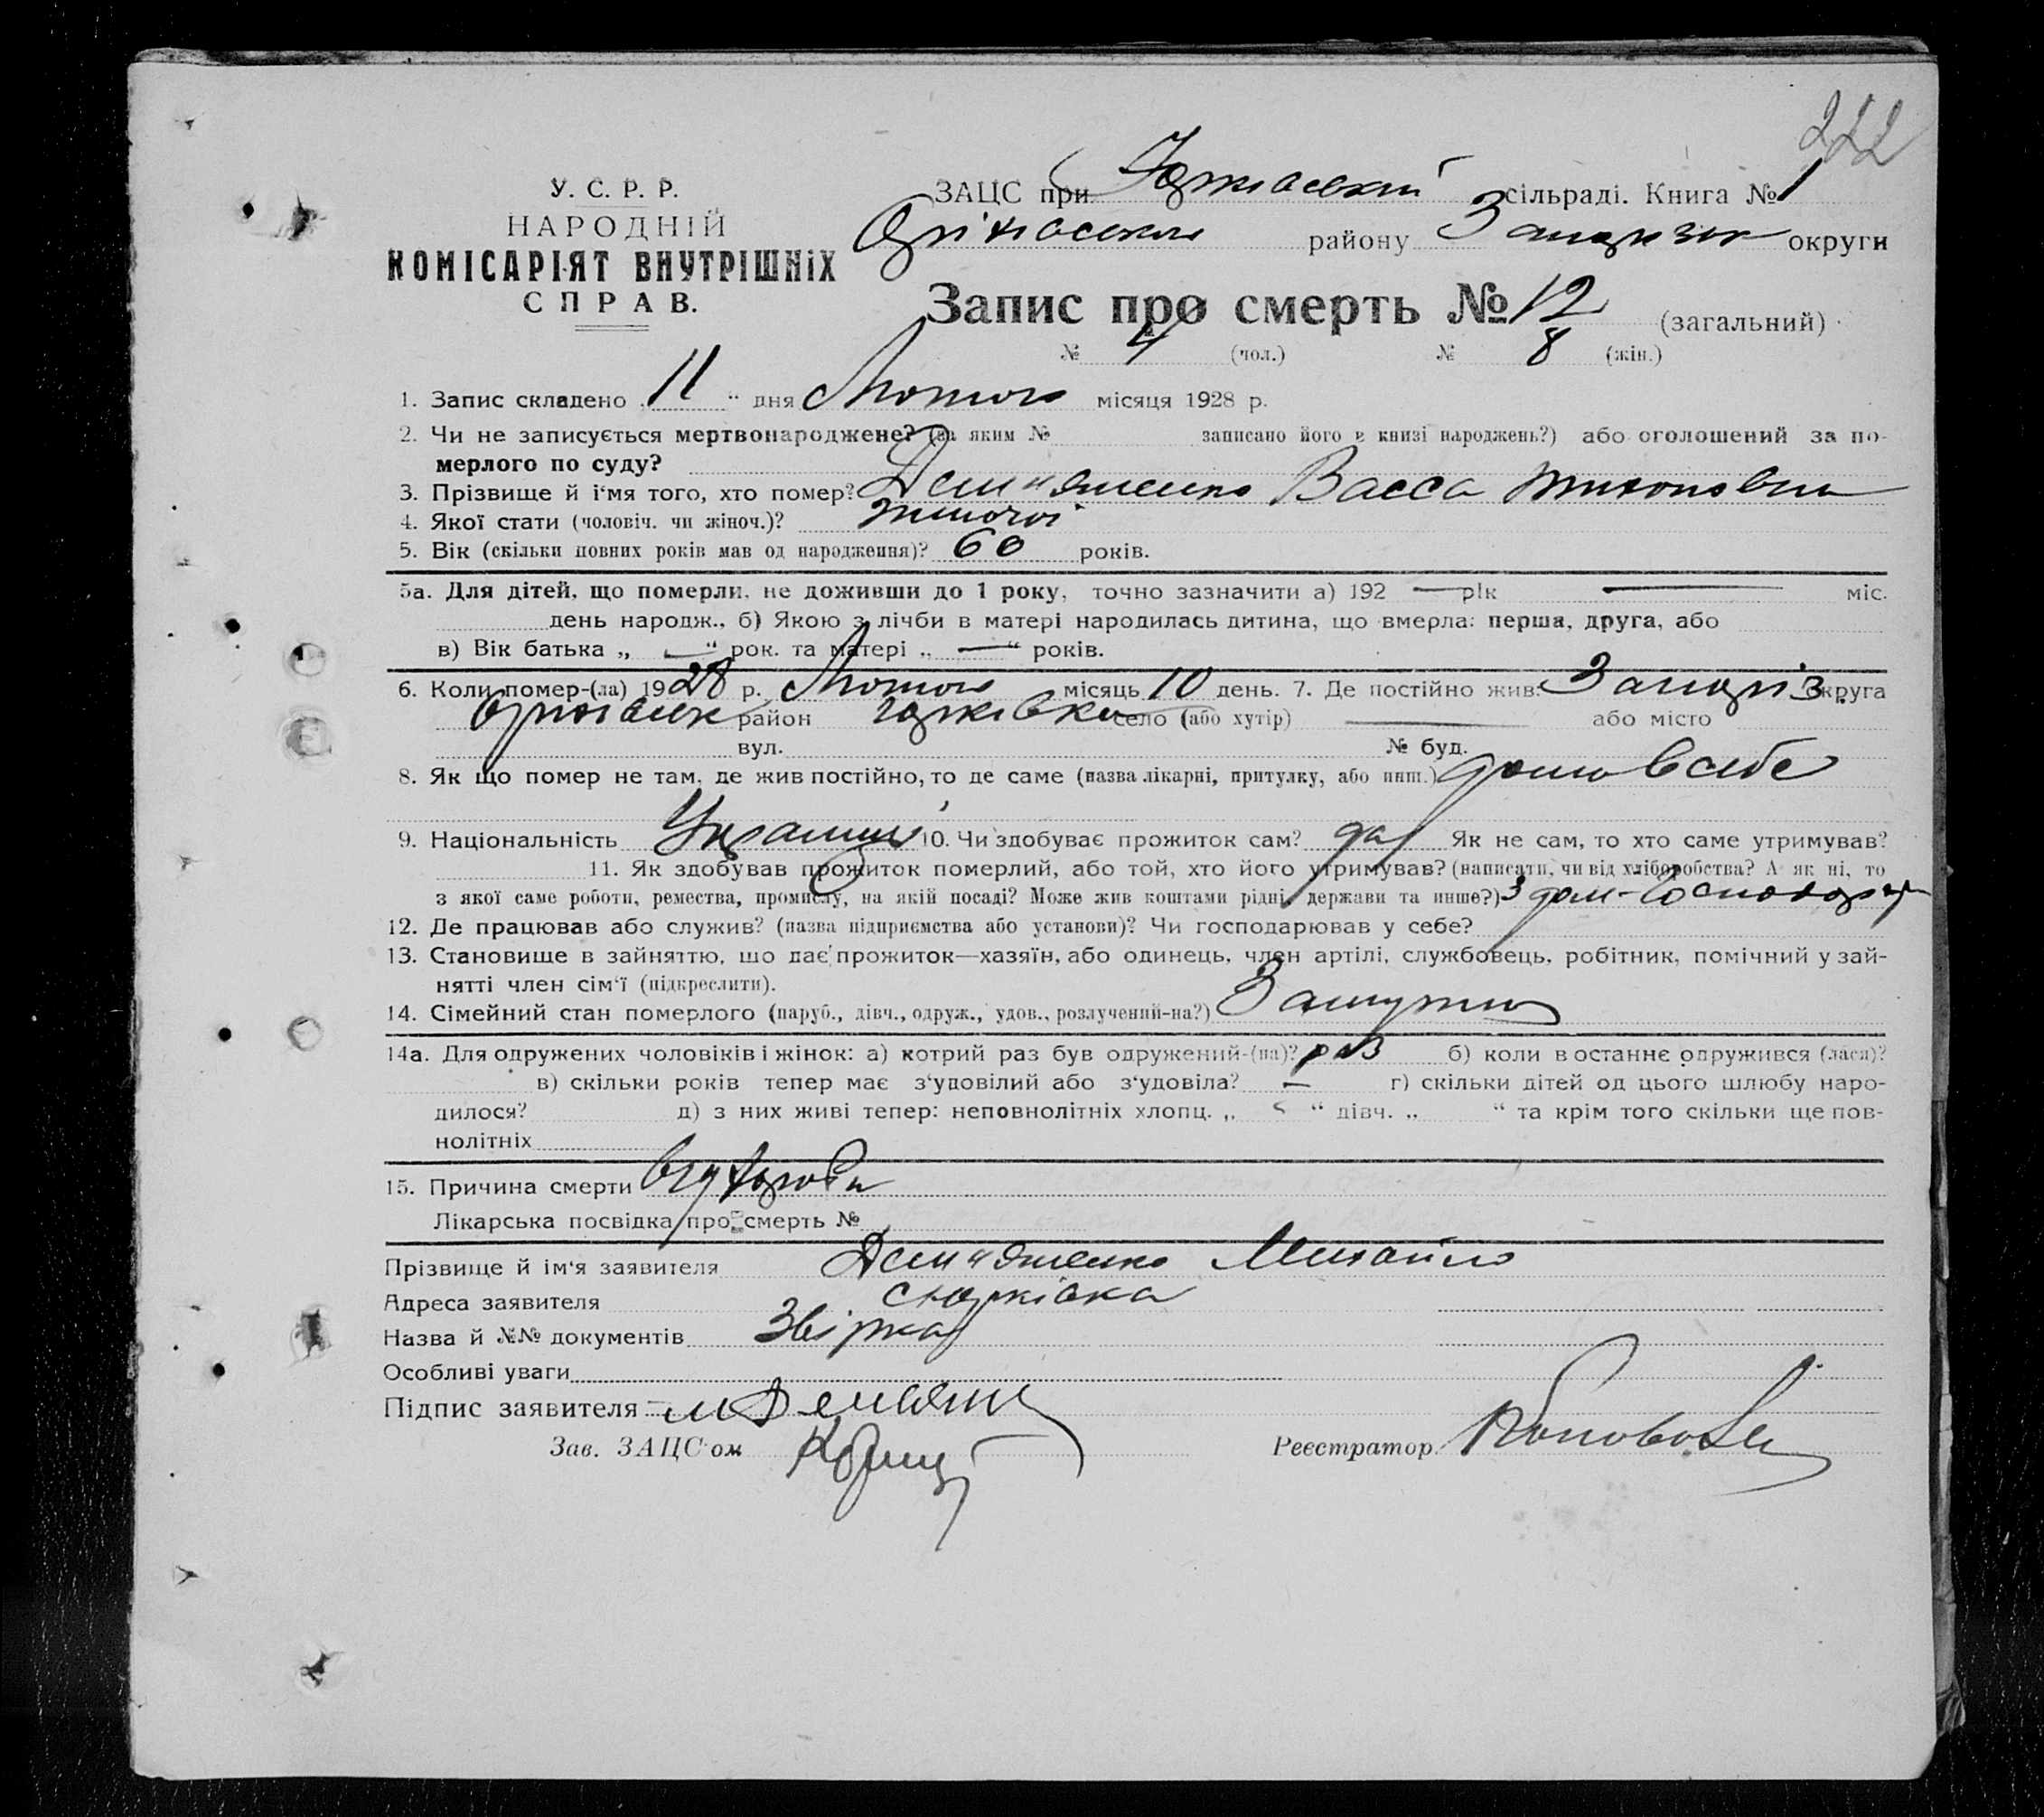 222
У. С. Р. Р.
НАРОДНІЙ
КОМІСАРІЯТ ВНУТРІШНІХ
СПРАВ.
ЗАЦС при Юрківській сільраді. Книга № 1
Оріхівськом району Запоріж округи
Запис про смерть № 12 (загальний)
№ 4 (чол.) № 8 (жін.)
1. Запис складено „ 11 “ дня Лютого місяця 1928 р.
2. Чи не записується мертвонароджене? (за яким № записано його в книзі народжень?) або оголошений за по-
мерлого по суду?
3. Прізвище й і'мя того, хто помер? Дем'яненко Васса Тихоновна
4. Якої стати (чоловіч. чи жіноч.)? жіночої
5. Вік (скільки повних років мав од народження)? 60 років.
5а. Для дітей, що померли, не доживши до 1 року, точно зазначити а) 192 — рік — міс.
день народж., б) Якою з лічби в матері народилась дитина, що вмерла: перша, друга, або
в) Вік батька „ — “ рок. та матері „ — “ років.
6. Коли помер-(ла) 1928 р. Лютого місяць 10 день. 7. Де постійно жив: Запоріз округа
Оріхівськ район Юрківка село (або хутір) — або місто
вул. № буд.
8. Як що помер не там, де жив постійно, то де саме (назва лікарні, притулку, або инш.) дома в себе
9. Національність 10. Чи здобуває прожиток сам? да Як не сам, то хто саме утримував?
11. Як здобував прожиток померлий, або той, хто його утримував? (написати, чи від хліборобства? А як ні, то
з якої саме роботи, ремества, промислу, на якій посаді? Може жив коштами рідні, держави та инше?) З дом-
12. Де працював або служив? (назва підприємства або установи)? Чи господарював у себе?
13. Становище в зайняттю, що дає прожиток—хазяїн, або одинець, член артілі, службовець, робітник, помічний у зай-
нятті член сім'ї (підкреслити).
14. Сімейний стан померлого (паруб., дівч., одруж., удов., розлучений-на?) Замужня
14а. Для одружених чоловіків і жінок: а) котрий раз був одружений-(на)? раз б) коли в останнє одружився (лася)?
в) скільки років тепер має з'удовілий або з'удовіла? — г) скільки дітей од цього шлюбу наро-
дилося? д) з них живі тепер: неповнолітніх хлопц. „ “ дівч. „ “ та крім того скільки ще пов-
нолітніх
15. Причина смерти від хороби
Лікарська посвідка про смерть №
Прізвище й ім'я заявителя Дем'яненко Михайло
Адреса заявителя с Юрківка
Назва й №№ документів Звірка
Особливі уваги
Підпис заявителя
Зав. ЗАЦС'ом
Реєстратор